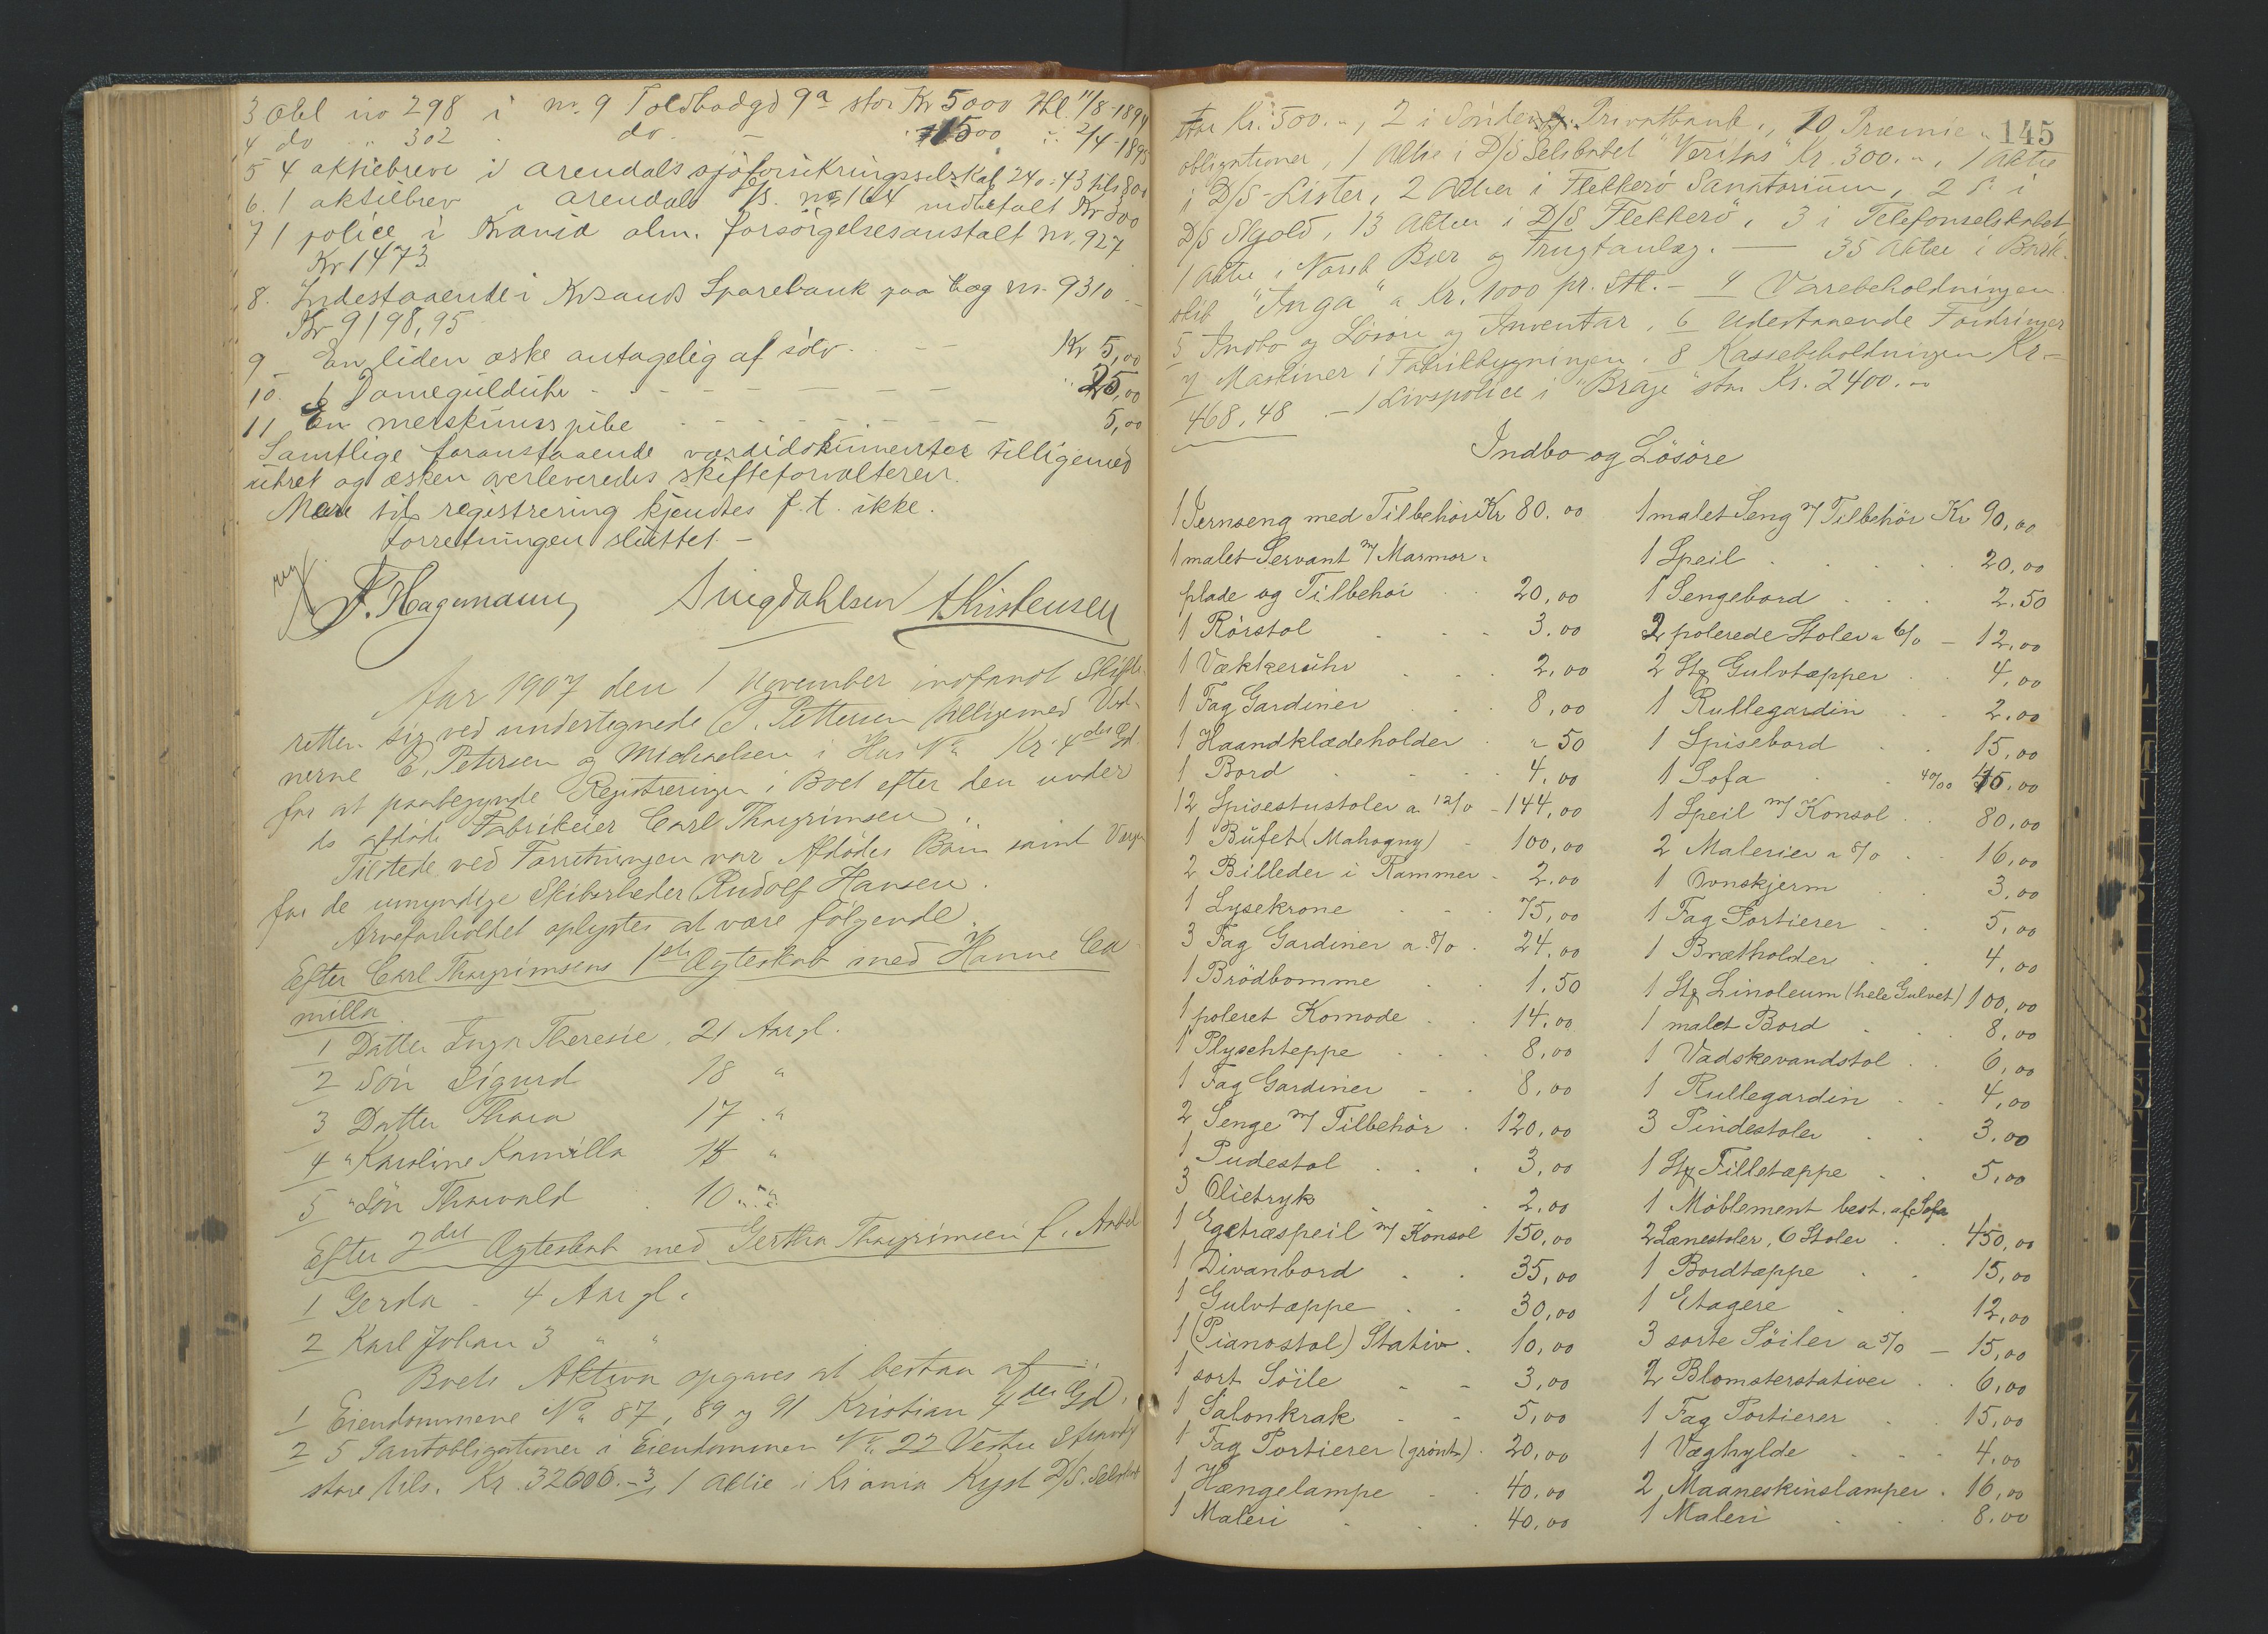 3 Obl no 298 i no. 9 Toldbodgd 9a stor Kr 5000 thl. 11/8-1894
4 do " 302 do. 1500 2/4-1895
5 4 aktiebreve i Arendals sjöforsikringsselskab 240-43 tils 800
6. 1 aktiebrev i Arendals no 164 indbetalt Kr 300
7 1 police i Krania alm. forsörgelsesanstalt no. 927
Kr 1473.
8. Indestaaende i Krsands Sparebank paa bog no. 9310
Kr 9198,95
9 En liden æske antagelig af sölv. Kr 5,00
10. 1 Dameguldur 25,00
11 En merskumspibe 5,00
Samtlige foranstaaende værdidokumenter tilligemed
uhret og æsken overleveredes skifteforvalteren.
Mere til registrering kjendtes f. t. ikke.
Forretningen sluttet. –
F. Hagemann, Singdahlsen A Kristensen
Aar 1907 den 1 November indfandt Skifte-
retten sig ved undertegnede J. Pettersen tilligemed Vid-
nerne E. Petersen og Michaelsen i Hus No Kr. 4des Gd.
for at paabegynde Registreringen i Boet efter den under
ds afdöde Fabrikeier Carl Thorgrimsen.
Tilstede ved Forretningen var Afdödes Börn samt Værge
for de umyndige Skibsrheder Rudolf Hansen.
Arveforholdet oplystes at være fölgende.
Efter Carl Thorgrimsens 1ste Ægteskab med Hanne Ca
milla
1 Datter Inga Theresie, 21 Aar gl.
2 Sön Sigurd 18 "
3 Datter Thora 17 "
4 " Karoline Kamilla 14 "
5 " Sön Thorvald 10 "
Efter 2det Ægteskab med Gertha Thorgrimsen f.
1 Gerda - 4 Aar gl.
2 Karl Johan 3 " "
Boets Aktiva opgaves at bestaa af
1 Eiendommene No 87, 89 og 91 Kristian 4des Gd.
2 5 Pantobligationer i Eiendommen No. 22 Vestre Strandg
store tils. Kr. 32000.- 3, 1 Aktie i Kr ania Kyst D/S. Selskab
145
stor Kr. 500.-, 2 i Sönden Privatbank, 10 Præmie
obligationer, 1 Aktie i D/S Selskabet "Veritas" Kr. 300.-, 1 Aktie
i D/S Lister, 2 Aktier i Flekkerö Sanatorium, 2 i
D/S Skjold, 13 Aktier i D/S Flekkerö, 3 i Telefonselskabet
1 Aktie i Norsk Bær og Frugtanlæg. — 35 Aktier i Bark-
skib "Inga" a Kr. 1000 pr. Stk. - 4 Varebeholdningen
5 Indbo og Lösöre og Inventar, 6 Udestaaende Fordringer
7 Maskiner i Fabrikbygningen. 8 Kassebeholdningen Kr-
468,48 - 1 Livspolice i "Brage" stor Kr. 2400.-
Indbo og Lösöre
1 Jernseng med Tilbehör Kr 80.00
1 malet Servant m/ Marmor-
plade og Tilbehör 20,00
1 Rörstol 3.00
1 Vækkeruhr 2,00
1 Fag Gardiner 8,00
1 Haandklædeholder " 50
1 Bord 4,00
12 Spisestustoler a 12/0 - 144,00
1 Bufet (Mahogny) 100,00
2 Billeder i Rammer - 2.00
1 Lysekrone 75,00
3 Fag Gardiner a 8/0 24,00
1 Brödbomme 1.50
1 poleret Komode 14.00
1 Plyschteppe 8,00
1 Fag Gardiner 8,00
2 Senge m/ Tilbehör 120,00
1 Pudestol 3,00
3 Olietryk 2,00
1 Egetræspeil m/ Konsol 150,00
1 Divanbord 35,00
1 Gulvtæppe 30,00
1 (Pianostol) Stativ 10,00
1 sort Söile 3,00
1 Salonkrak 5,00
1 Fag Portierer (grönt) 20,00
1 Hængelampe 40.00
1 Maleri 40,00
1 malet Seng m/ Tilbehör Kr 90,00
1 Speil 20,00
1 Sengebord 2.50
2 polerede Stoler a 6/0 - 12,00
2 Stk Gulvtæpper 4,00
1 Rullegardin 2.00
1 Spisebord 15,00
1 Sofa 40/00 45.00
1 Speil m/ Konsol 80,00
2 Malerier a 8/0 16,00
1 Ovnskjerm 3,00
1 Fag Portierer 5,00
1 Brætholder 4,00
1 Stk Linoleum (hele Gulvet) 100,00
1 malet Bord 8,00
1 Vadskevandstol 6,00
1 Rullegardin 4,00
3 Pindestoler 3,00
1 Stk Filletæppe 5,00
1 Möblement best. af Sofa
2 Lænestoler, 6 Stoler 450,00
1 Bordtæppe 15,00
1 Etagere 12,00
3 sorte Söiler a 5/0 - 15,00
2 Blomsterstativer 6,00
1 Fag Portierer 15,00
1 Væghylde 4,00
2 Maaneskinslamper 16,00
1 Maleri 8,00